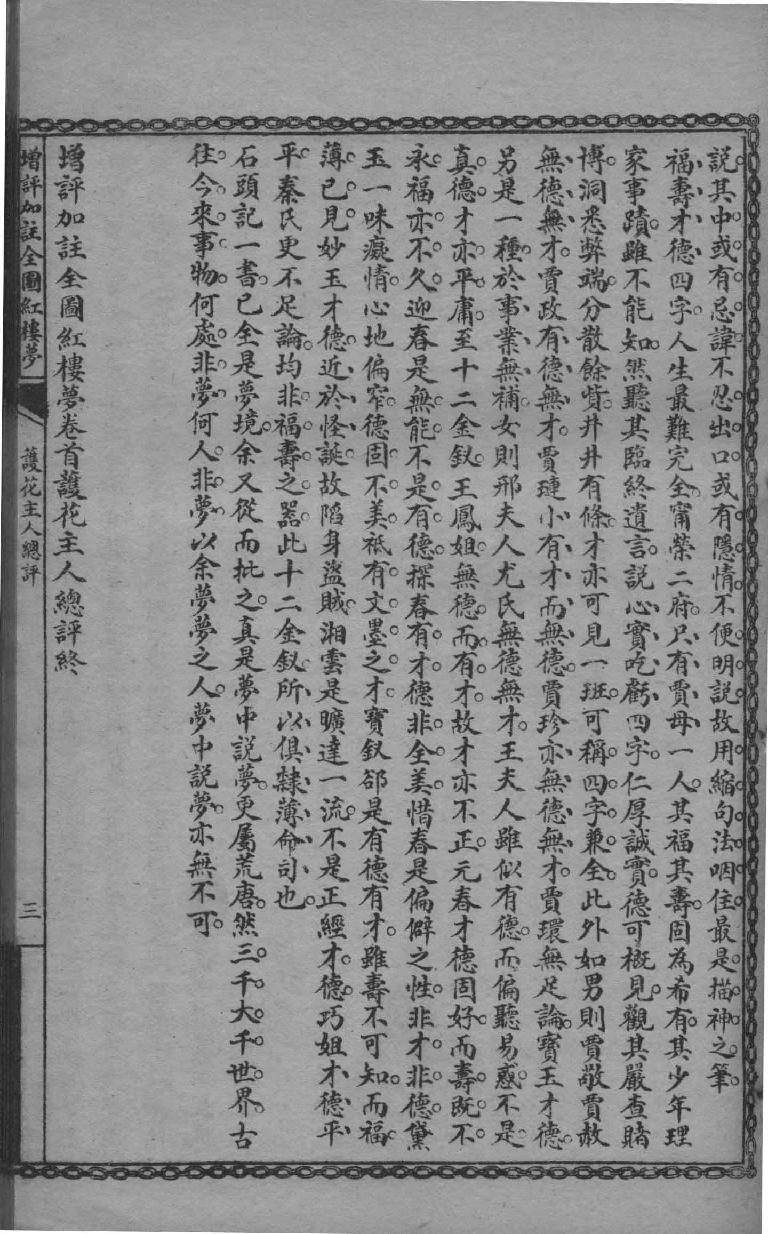 說其中或有忌諱不忍出口或有隱情不便明說故用縮句法咽住最是描神之筆
福壽才德四字人生最難完全甯榮二府只有賈母一人其福其壽固為希有其少年理
家事蹟雖不能知然聽其臨終遺言說心實吃虧四字仁厚誠實德可概見觀其嚴查賭
博洞悉弊端分散餘貲井井有條才亦可見一班可稱四字兼全此外如男則賈敬賈赦
無德無才賈政有德無才賈璉小有才而無德賈珍亦無德無才賈環無足論寶玉才德
另是一種於事業無補女則邢夫人尤氏無德無才王夫人雖似有德而偏聽易惑不是
真德才亦平庸至十二金釵王鳳姐無德而有才故才亦不正元春才德固好而壽旣不
永福亦不久迎春是無能不是有德探春有才德非全美惜春是偏僻之性非才非德黛
玉一味癡情心地偏窄德固不美祗有文墨之才寶釵郤是有德有才雖壽不可知而福
薄已見妙玉才德近於怪誕故陷身盜賊湘雲是曠達一流不是正經才德巧姐才德平
平秦氏更不足論均非福壽之器此十二金釵所以俱隸薄命司也
石頭記一書已全是夢境余又從而批之真是夢中說夢更屬荒唐然三千大千世界古
往今來事物何處非夢何人非夢以余夢夢之人夢中說夢亦無不可
增評加註全圖紅樓夢卷首護花主人總評終
增評加註全圖紅樓夢
護花主人總評
三